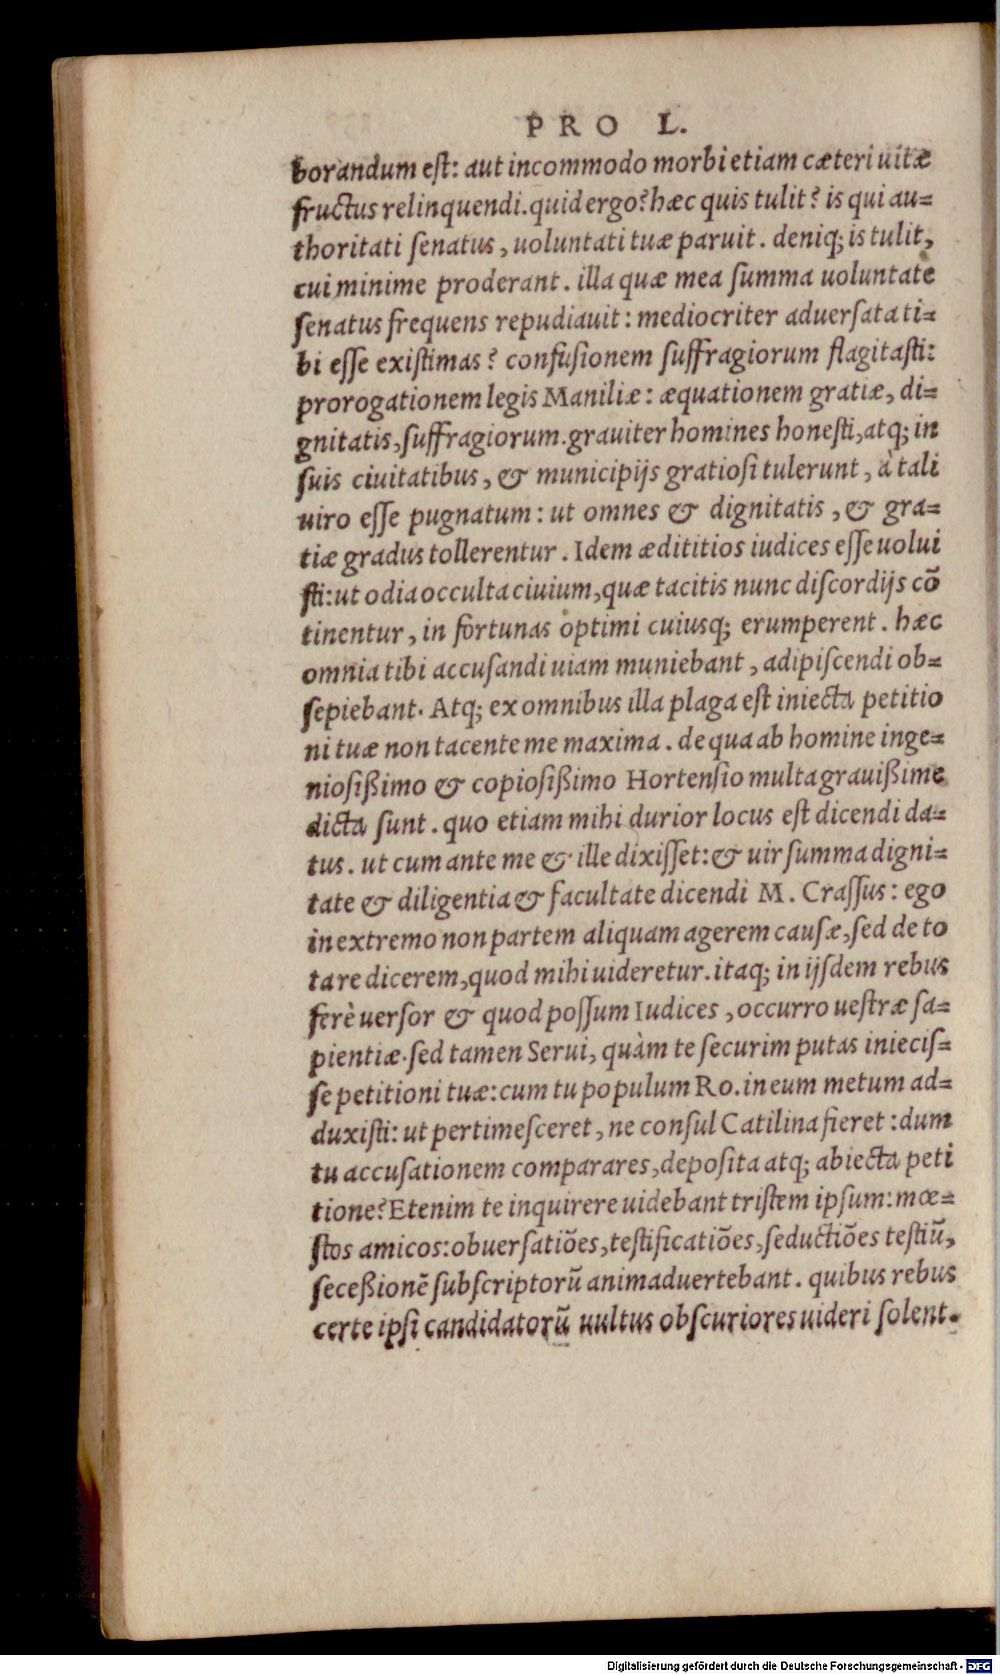 PRO L.
borandum eſt: aut incommodo morbi etiam cæteri uitæ
fructus relinquendi. quid ergo? hæc quis tulit? is qui au=
thoritati ſenatus, uoluntati tuæ paruit. deniq; is tulit,
cui minime proderant. illa quæ mea ſumma uoluntate
ſenatus frequens repudiauit: mediocriter aduerſata ti=
bi eſſe exiſtimas? confuſionem ſuffragiorum flagitaſti:
prorogationem legis Maniliæ: æquationem gratiæ, di=
gnitatis, ſuffragiorum. grauiter homines honeſti, atq; in
ſuis ciuitatibus, & municipijs gratioſi tulerunt, à tali
uiro eſſe pugnatum: ut omnes & dignitatis, & gra=
tiæ gradus tollerentur. Idem ædititios iudices eſſe uolui
ſti: ut odia occulta ciuium, quæ tacitis nunc diſcordijs cõ
tinentur, in fortunas optimi cuiusq; erumperent. hæc
omnia tibi accuſandi uiam muniebant, adipiſcendi ob=
ſepiebant. Atq; ex omnibus illa plaga eſt iniecta petitio
ni tuæ non tacente me maxima. de qua ab homine inge=
nioſißimo & copioſißimo Hortenſio multa grauißime
dicta ſunt. quo etiam mihi durior locus eſt dicendi da=
tus. ut cum ante me & ille dixiſſet: & uir ſumma digni=
tate & diligentia & facultate dicendi M. Craſſus: ego
in extremo non partem aliquam agerem cauſæ, ſed de to
ta re dicerem, quod mihi uideretur. itaq; in ijſdem rebus
ferè uerſor & quod poſſum Iudices, occurro ueſtræ ſa=
pientiæ. ſed tamen Serui, quàm te ſecurim putas inieciſ=
ſe petitioni tuæ: cum tu populum Ro. in eum metum ad=
duxiſti: ut pertimeſceret, ne conſul Catilina fieret: dum
tu accuſationem comparares, depoſita atq; abiecta peti
tione? Etenim te inquirere uidebant triſtem ipſum: mœ=
ſtos amicos: obuerſatiões, teſtificatiões, ſeductiões teſtiũ,
ſeceßionẽ ſubſcriptorũ animaduertebant. quibus rebus
certe ipſi candidatorũ uultus obſcuriores uideri ſolent.
Digitalisierung gefördert durch die Deutsche Forschungsgemeinschaft - DFG